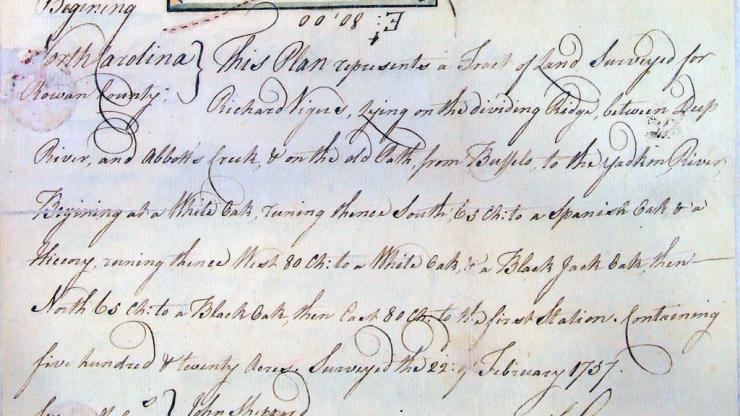 Begining
E: 80,00
North Carolina } This Plan represents a Tract of Land Surveyed for
Rowan County; Richard Vigers, Lying on the dividing Ridge, between Deep
River, and Abbott's Creek, & on the old Path, from Buffelo, to the Yadkin River,
Begining at a White Oak, runing thence South, 65 Ch: to a Spanish Oak & a
Hiccory, runing thence West 80 Ch: to a White Oak, & a Black Jack Oak, then
North 65 Ch: to a Black Oak, then East 80 Ch: to the first Station. Containing
five hundred & twenty Acres. Surveyed the 22: of February 1757.
John Sheppard